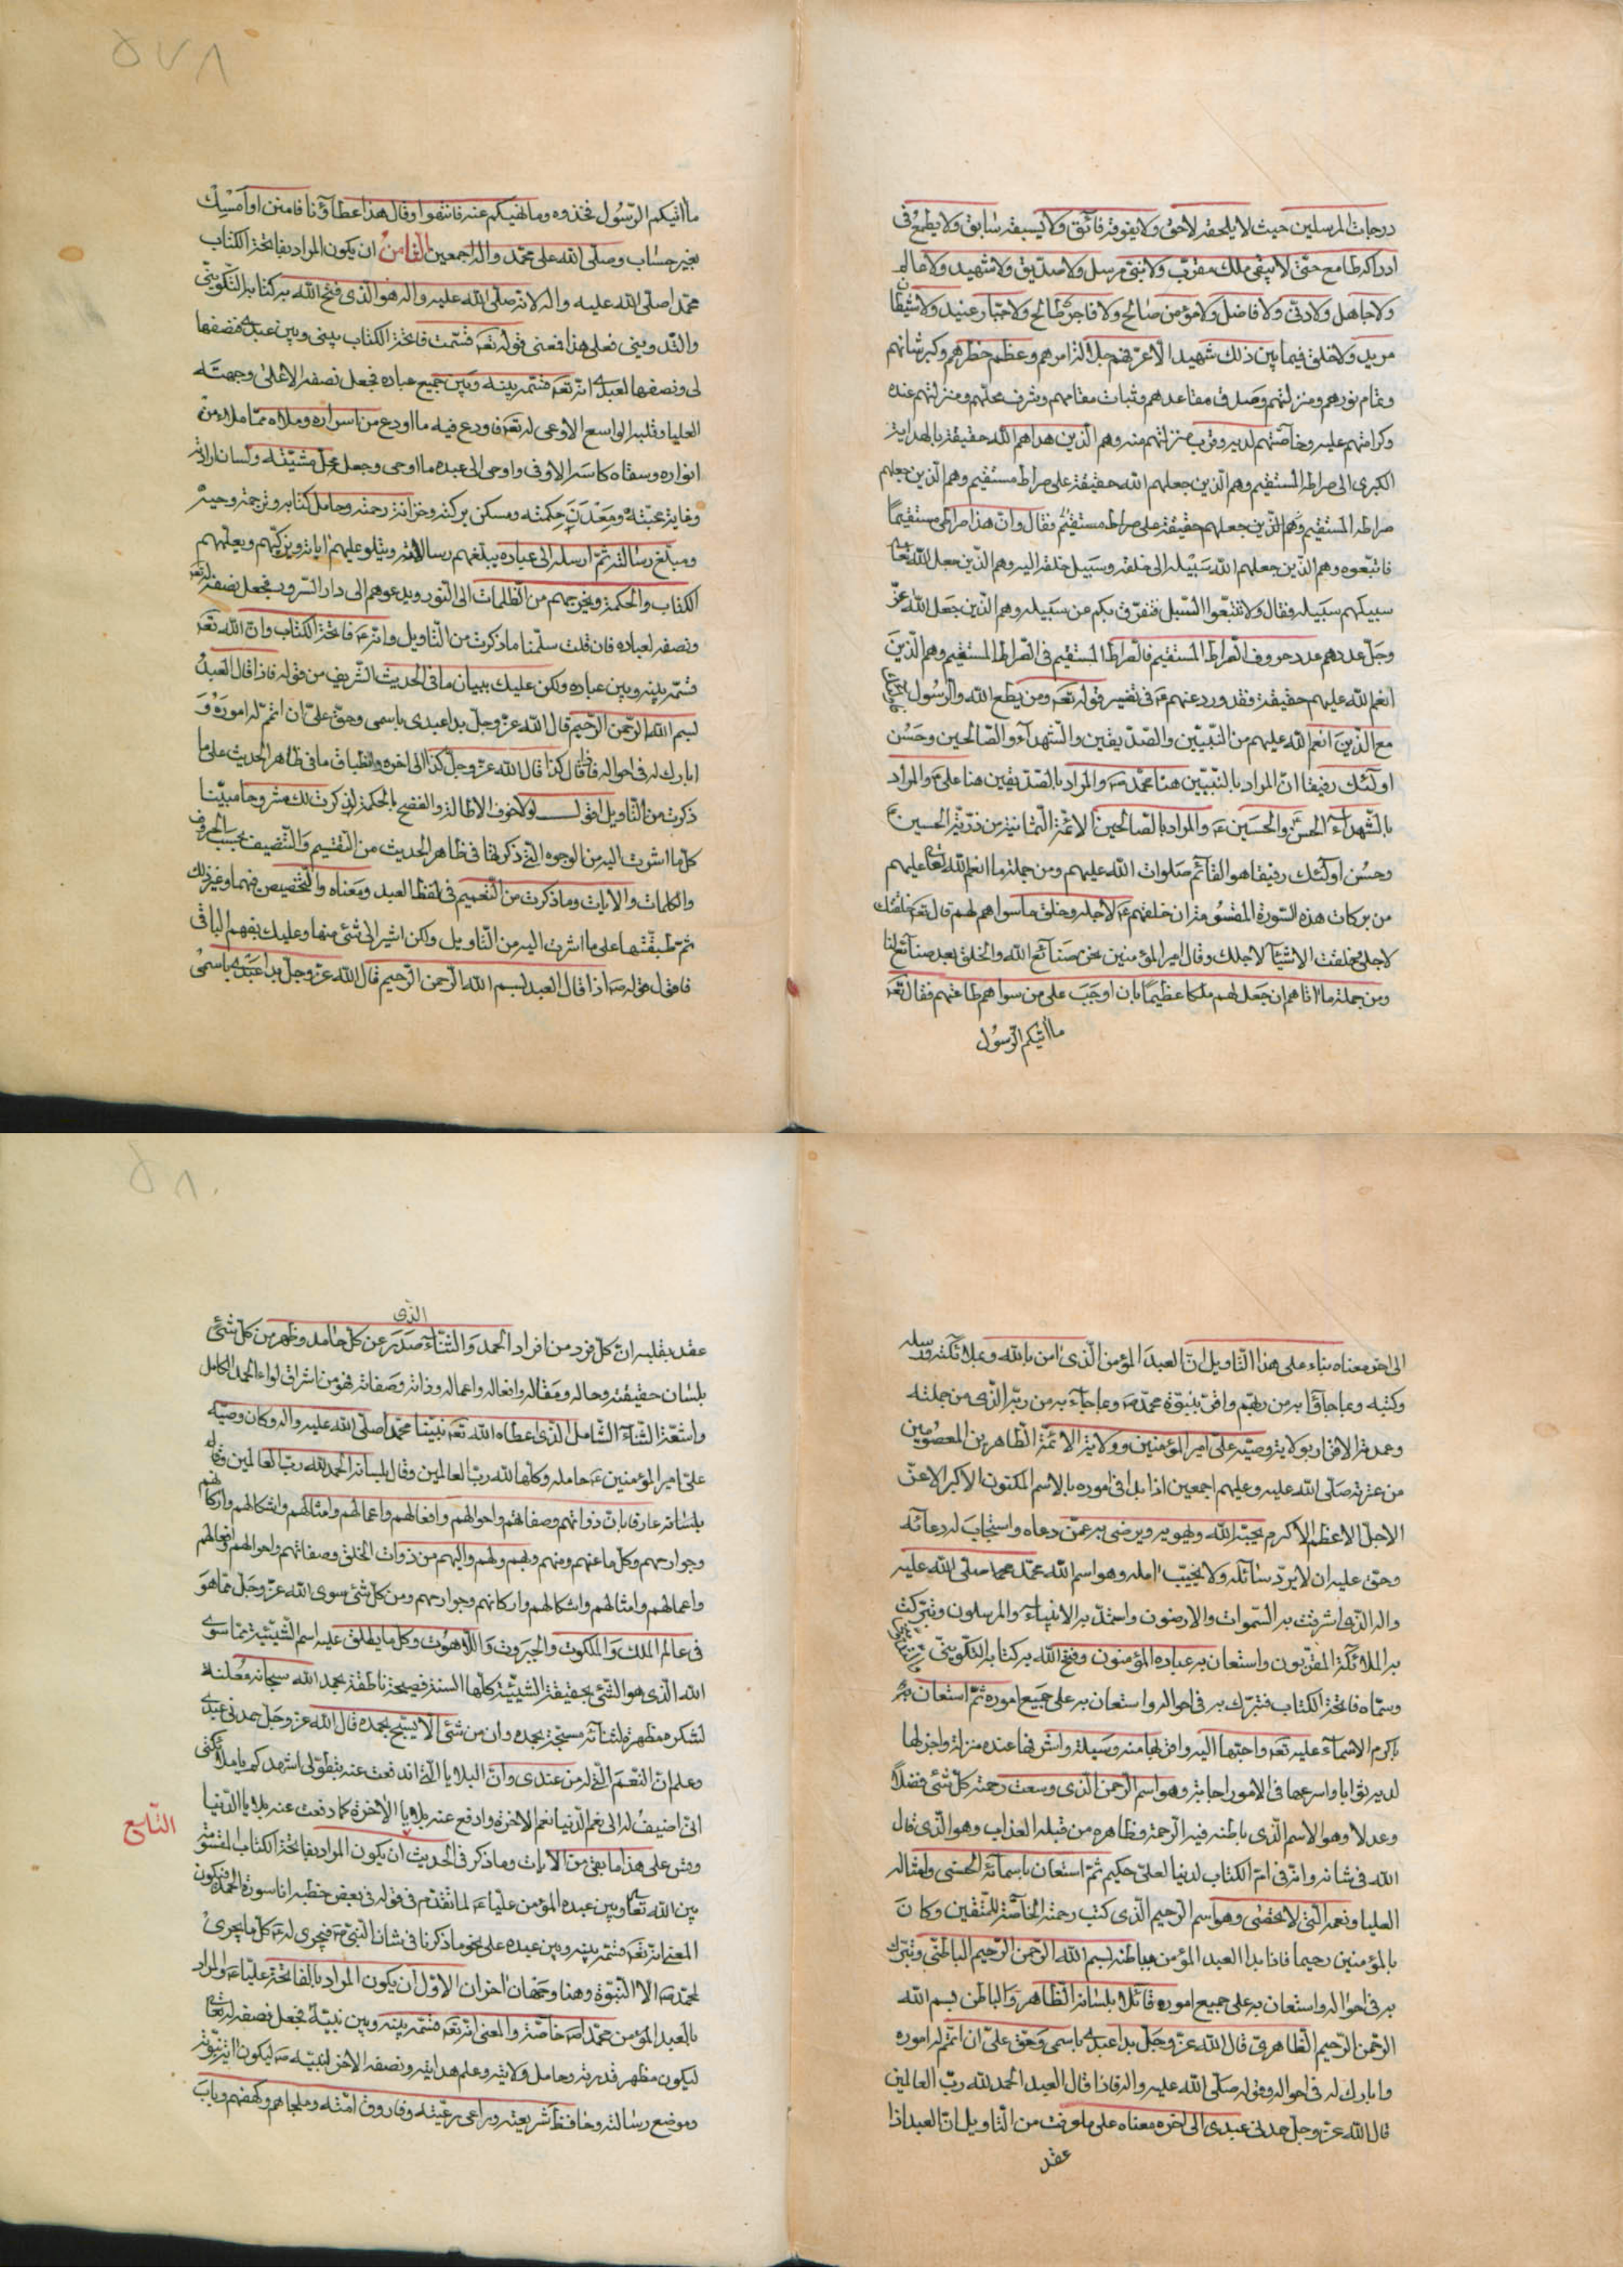 درجات المرسلين حيث لا يلحقه لاحق ولا يفوقه فائق ولا يسبقه سابق ولا يطمع فى
ادراكه طامع حتى لا يبقى ملك مقرب ولا نبى مرسل ولا صديق ولا شهيد ولا عالم
ولا جاهل ولا دنى ولا فاضل ولا مؤمن صالح ولا فاجر طالح ولا جبار عنيد ولا شيطان
مريد ولا خلق فيما بين ذلك شهيد الا عرفهم جلالة امرهم وعظم خطرهم وكبر شانهم
وتمام نورهم ومنزلتهم وصدق مقاعدهم وثبات مقامهم وشرف محلهم ومنزلتهم عنده
وكرامتهم عليه وخاصتهم لديه وقرب منزلتهم منه وهم الذين هداهم الله حقيقة بالهداية
الكبرى الى صراطه المستقيم وهم الذين جعلهم الله حقيقة على صراط مستقيم وهم الذين جعلهم
صراطه المستقيم وهم الذين جعلهم حقيقة على صراط مستقيم فقال وان هذا صراطى مستقيما
فاتبعوه وهم الذين جعلهم الله سبيله الى خلقه وسبيل خلقه اليه وهم الذين جعل الله تعالى
سبيلهم سبيله فقال ولا تتبعوا السبل فتفرق بكم عن سبيله وهم الذين جعل الله عز
وجل عددهم عدد حروف الصراط المستقيم فالصراط المستقيم فى الصراط المستقيم وهم الذين
انعم الله عليهم حقيقة فقد ورد عنهم ع فى تفسير قوله تعه ومن يطع الله والرسول
مع الذين انعم الله عليهم من النبيين والصديقين والشهداء والصالحين وحسن
اولئك رفيقا ان المراد بالنبيين هنا محمد ص والمراد بالصديقين هنا على ع والمراد
بالشهداء الحسن ع والحسين ع والمراد بالصالحين الائمة الثمانية من ذرية الحسين ع
وحسن اولئك رفيقا هو القائم صلوات الله عليهم ومن جملة ما انعم الله تعالى عليهم
من بركات هذه السورة المقسومة ان خلقهم ع لاجله وخلق ما سواهم لهم قال تعه خلقتك
لاجلى وخلقت الاشياء لاجلك وقال امير المؤمنين نحن صنائع الله والخلق بعد صنائع لنا
ومن جملة ما اتاهم ان جعل لهم ملكا عظيما بان اوجب على من سواهم طاعتهم فقال تعه
ما اتيكم الرسول
ما اتيكم الرسول فخذوه وما نهيكم عنه فانتهوا وقال هذا عطاؤنا فامنن او امسك
بغير حساب وصلى الله على محمد واله اجمعين الثامن ان يكون المراد بفاتحة الكتاب
محمدا صلى الله عليه واله لانه صلى الله عليه واله هو الذى فتح الله به كتابه التكوينى
والتدوينى فعلى هذا فمعنى قوله تعه قسمت فاتحة الكتاب بينى وبين عبدى فنصفها
لى ونصفها لعبدى انه تعه قسمه بينه وبين جميع عباده فجعل نصفه الاعلى وجهته
العليا وقلبه الواسع الاوعى له تعه فاودع فيه ما اودع من اسراره وملاه مما ملاه من
انواره وسقاه كاسه الاوفى واوحى الى عبده ما اوحى وجعل محل مشيته ولسان ارادته
وغاية محبته ومعدن حكمته ومسكن بركته وخزانة رحمته وحامل كتابه وترجمة وحيه
ومبلغ رسالته ثم ارسله الى عباده يبلغهم رسالاته ويتلو عليهم اياته ويزكيهم ويعلمهم
الكتاب والحكمة ويخرجهم من الظلمات الى النور ويدعوهم الى دار السرور فجعل نصفه له تعه
ونصفه لعباده فان قلت سلمنا ما ذكرت من التاويل وانه ع فاتحة الكتاب وان الله تعه
قسمه بينه وبين عباده ولكن عليك ببيان ما فى الحديث الشريف من قوله فاذا قال العبد
بسم الله الرحمن الرحيم قال الله عز وجل بدا عبدى باسمى وحق على ان اتمم له اموره و
ابارك له فى احواله فاذا قال كذا قال الله عز وجل كذا الى اخره وانطباق ما فى ظاهر الحديث على ما
ذكرت من التاويل اقول ولا خوف الاطالة والفضح بالحكمة لذكرت لك مشروحا مبينا
كل ما اشرت اليه من الوجوه التى ذكرتها فى ظاهر الحديث من التقسيم والتنصيف بحسب الحروف
والكلمات والايات وما ذكرت من التعميم فى لفظ العبد ومعناه والتخصيص فيهما وغير ذلك
ثم طبقتها على ما اشرت اليه من التاويل ولكن اشير الى شئ منها وعليك بفهم الباقى
فاقول قوله ص اذا قال العبد بسم الله الرحمن الرحيم قال الله عز وجل بدا عبدى باسمى
الى اخره معناه بناء على هذا التاويل ان العبد المؤمن الذى امن بالله وبملائكته ورسله
وكتبه وبما جاؤا به من ربهم واقر بنبوة محمد ص وبما جاء به من ربه الذى من جملته
وعمدته الاقرار بولاية وصيه على امير المؤمنين وولاية الائمة الطاهرين المعصومين
من عترته صلى الله عليه وعليهم اجمعين اذا بدا فى اموره بالاسم المكنون الاكبر الاعز
الاجل الاعظم الاكرم يحبه الله ويهويه ويرضى به عمن دعاه واستجاب له دعائه
وحق عليه ان لا يرد سائله ولا يخيب امله وهو اسم الله محمد صلى الله عليه
واله الذى اشرقت به السموات والارضون واستمد به الانبياء والمرسلون وتبركت
به الملائكة المقربون واستعان به عباده المؤمنون وفتح الله به كتابه التكوينى
وسماه فاتحة الكتاب فتبرك به فى احواله واستعان به على جميع اموره ثم استعان
باكرم الاسماء عليه تعه واحبها اليه واقربها منه وسيلة واشرفها عنده منزلة واجزلها
لديه ثوابا واسرعها فى الامور اجابة وهو اسم الرحمن الذى وسعت رحمته كل شئ فضلا
وعدلا وهو الاسم الذى باطنه فيه الرحمة وظاهره من قبله العذاب وهو الذى قال
الله فى شانه وانه فى ام الكتاب لدينا لعلى حكيم ثم استعان باسمائه الحسنى وامثاله
العليا ونعمه التى لا تحصى وهو اسم الرحيم الذى كتب رحمته الخاصة للمتقين وكان
بالمؤمنين رحيما فاذا بدا العبد المؤمن بباطنه بسم الله الرحمن الرحيم الباطنى وتبرك
به فى احواله واستعان به على جميع اموره قائلا بلسانه الظاهر والباطن بسم الله
الرحمن الرحيم الظاهرى قال الله عز وجل بدا عبدى باسمى وحق على ان اتمم له اموره
وابارك له فى احواله وقوله صلى الله عليه واله فاذا قال العبد الحمد لله رب العالمين
قال الله عز وجل حمدنى عبدى الى اخره معناه على ما عرفت من التاويل ان العبد اذا
عقد
الذى
عقد بقلبه ان كل فرد من افراد الحمد والثناء صدر عن كل حامد وظهر من كل شئ
بلسان حقيقته وحاله ومقاله وافعاله واعماله وذاته وصفاته فهو من اشراق لواء الحمد الكامل
واشعة الثناء الشامل الذى اعطاه الله تعه نبينا محمدا صلى الله عليه واله وكان وصيه
على امير المؤمنين ع حامله وكلها لله رب العالمين وقال بلسانه الحمد لله رب العالمين وقاله
بلسانه عارفا بان ذواتهم وصفاتهم واحوالهم وافعالهم واعمالهم وامثالهم واشكالهم واركانهم
وجوارحهم وكل ما عنهم ومنهم وبهم ولهم واليهم من ذوات الخلق وصفاتهم واحوالهم وافعالهم
واعمالهم وامثالهم واشكالهم واركانهم وجوارحهم ومن كل شئ سوى الله عز وجل مما هو
فى عالم الملك والملكوت والجبروت واللاهوت وكل ما يطلق عليه اسم الشيئية مما سوى
الله الذى هو الشئ بحقيقة الشيئية كلها السنة فصيحة ناطقة بحمد الله سبحانه معلنة
لشكره مظهرة لثنائه مسبحة بحمده وان من شئ الا يسبح بحمده قال الله عز وجل حمدنى عبدى
وعلم ان النعم التى له من عندى وان البلايا التى اندفعت عنه بتطولى اشهدكم يا ملائكتى
انى اضيف له الى نعم الدنيا نعم الاخرة وادفع عنه بلايا الاخرة كما دفعت عنه بلايا الدنيا
التاسع
وقس على هذا ما بقى من الايات وما ذكر فى الحديث ان يكون المراد بفاتحة الكتاب المقسومة
بين الله تعالى وبين عبده المؤمن عليا ع لما تقدم فى قوله فى بعض خطبه انا سورة الحمد فيكون
المعنى انه تعه قسمه بينه وبين عبده على نحو ما ذكرنا فى شان النبى ص فيجرى له ع كل ما يجرى
لمحمد ص الا النبوة وهنا وجهان اخران الاول ان يكون المراد بالفاتحة عليا ع والمراد
بالعبد المؤمن محمدا ص خاصة والمعنى انه تعه قسمه بينه وبين نبيه فجعل نصفه له تعالى
ليكون مظهر قدرته وحامل ولايته وعلم هدايته ونصفه الاخر لنبيه ص ليكون اية نبوته
وموضع رسالته وحافظ شريعته وراعى رعيته وفاروق امته وملجاهم وكهفهم وباب